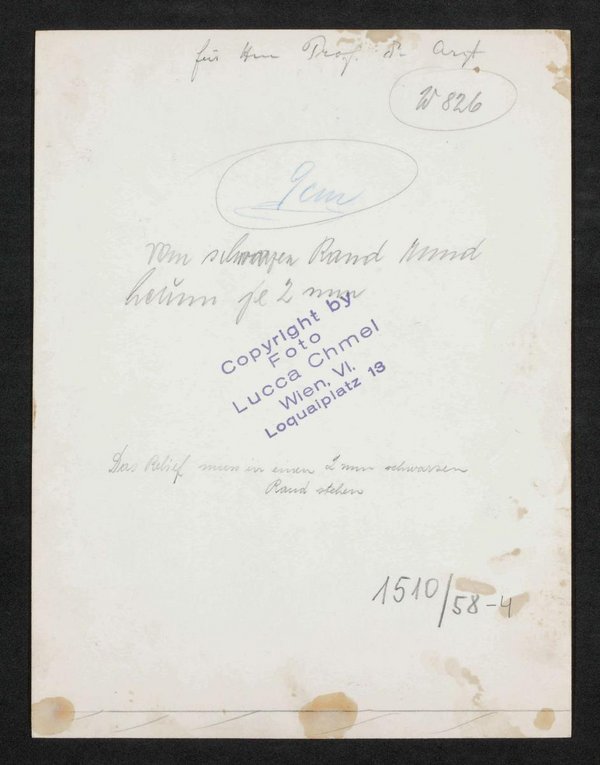 für Hrn Prof. Dr. Arzt
W 826
9cm
vom schwarzen Rand rund
herum je 2 mm
Copyright by
Foto
Lucca Chmel
Wien, VI.
Loquaiplatz 13
Das Relief muss in einen 2 mm schwarzen
Rand stehen
1510/58-4